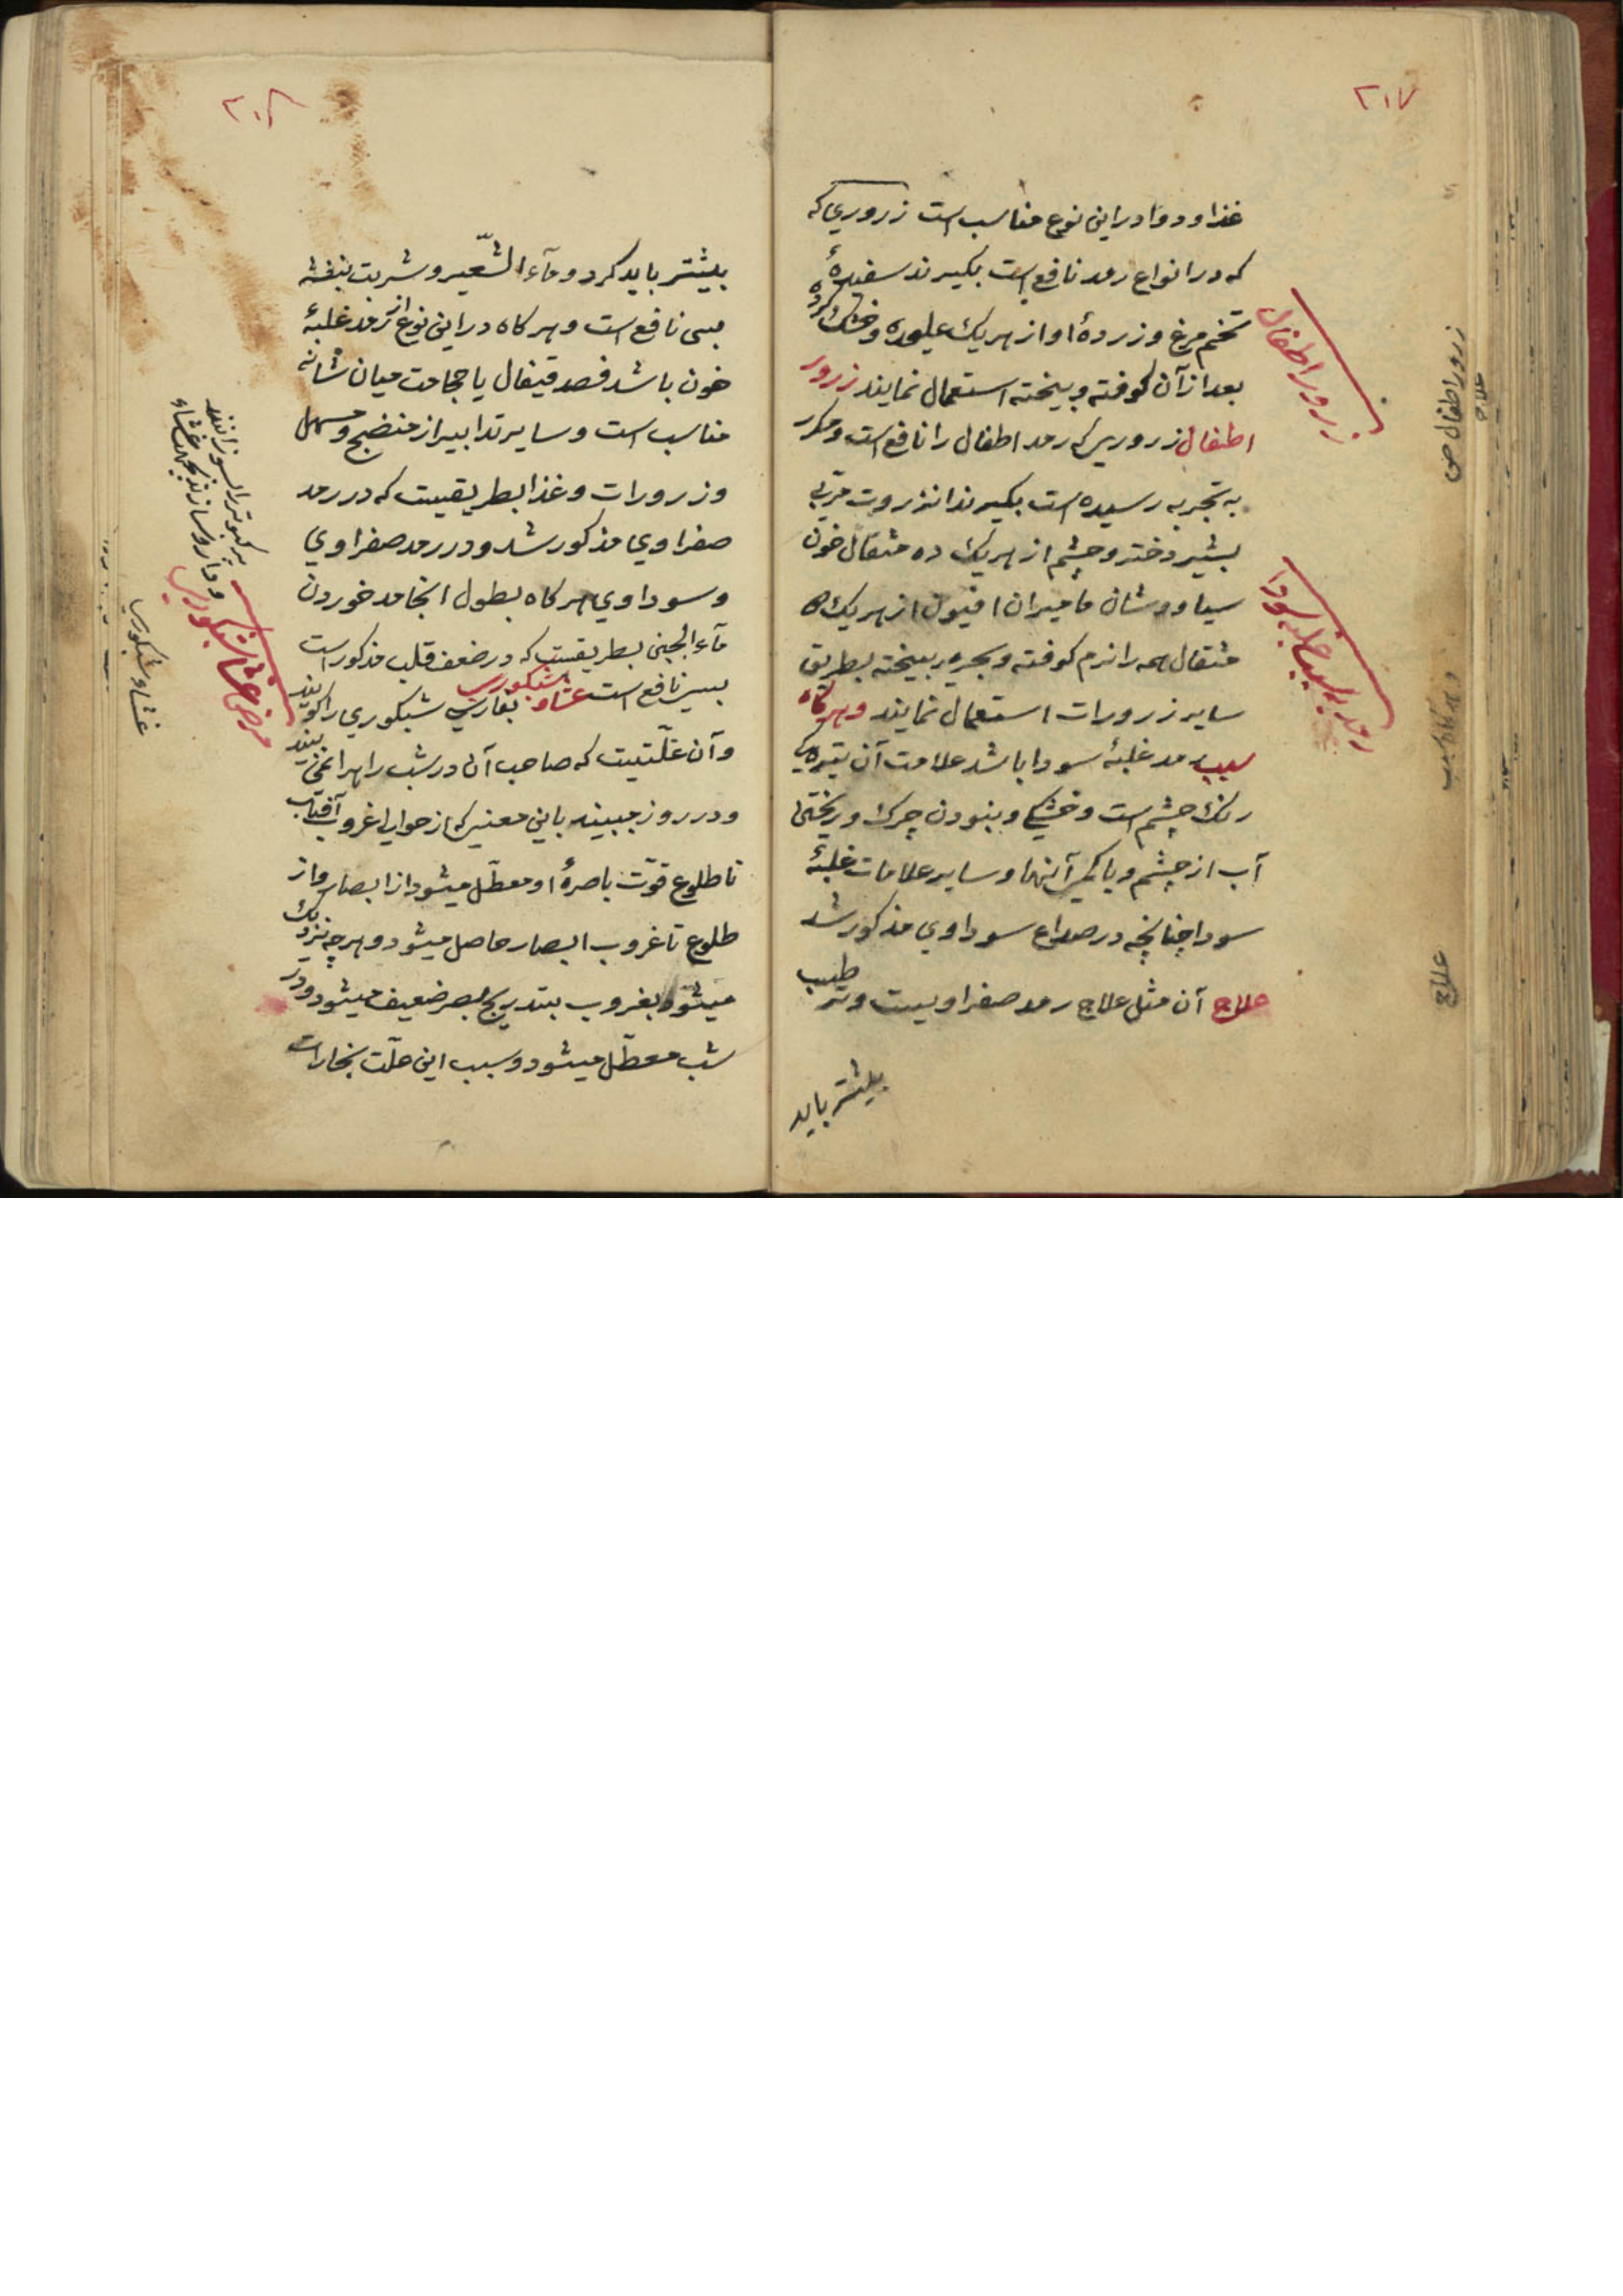 ۲۱۷
غذا و دوا در این نوع مناسب است زروری که
که در انواع رمد نافع است بکیرند سفیدهٔ
تخم مرغ و زردهٔ او از هر یک علیحده و خشک کرده
بعد از آن کوفته و بیخته استعمال نمایند زرور
اطفال زروریکه رمد اطفال را نافع است و مکرر
به تجربه رسیده است بکیرند انزروت مربی
بشیر دختر و چشم از هر یک ده مثقال خون
سیاووشان مامیران افیون از هر یک ۵
مثقال همه را نرم کوفته و بحریر بیخته بطریق
سایر زرورات استعمال نمایند و هر کاه
سبب رمد غلبهٔ سودا باشد علامت آن تیرهکی
رنک چشم است و خشکی و بنودن چرک و ریختن
آب از چشم و یا کمی آنها و سایر علامات غلبهٔ
سودا چنانچه در صداع سوداوی مذکور شد
علاج آن مثل علاج رمد صفراویست و ترطیب
بیشتر باید
زرور اطفال
رمد بسبب غلبه سودا
زرور اطفال ص
علاج
و هر کاه سبب
علاج
۲۰۸
بیشتر باید کرد و مآء الشّعیر و شربت بنفشه
بسی نافع است و هر کاه در این نوع از رمد غلبهٔ
خون باشد فصد قیفال یا حجامت میان شانه
مناسب است و سایر تدابیر از منضج و مسهل
و زرورات و غذا بطریقیست که در رمد
صفراوی مذکور شد و در رمد صفراوی
و سوداوی هر کاه بطول انجامد خوردن
مآء الجبن بطریقیست که در ضعف قلب مذکور است
بسیز نافع است عشاو شبکوری بفارسی شبکوری را کویند
و آن علّتیست که صاحب آن در شب راه را نمی بیند
و در روز میبیند باین معنی که از حوالی غروب آفتاب
تا طلوع قوّت باصرهٔ او معطّل میشود از ابصار و از
طلوع تا غروب ابصار حاصل میشود و هر چه نزدیک
میشود بغروب بتدریج بصر ضعیف میشود و در
شب معطّل میشود و سبب این علّت بخارات
مرض عشا شبکوری
غشاء شبکوری